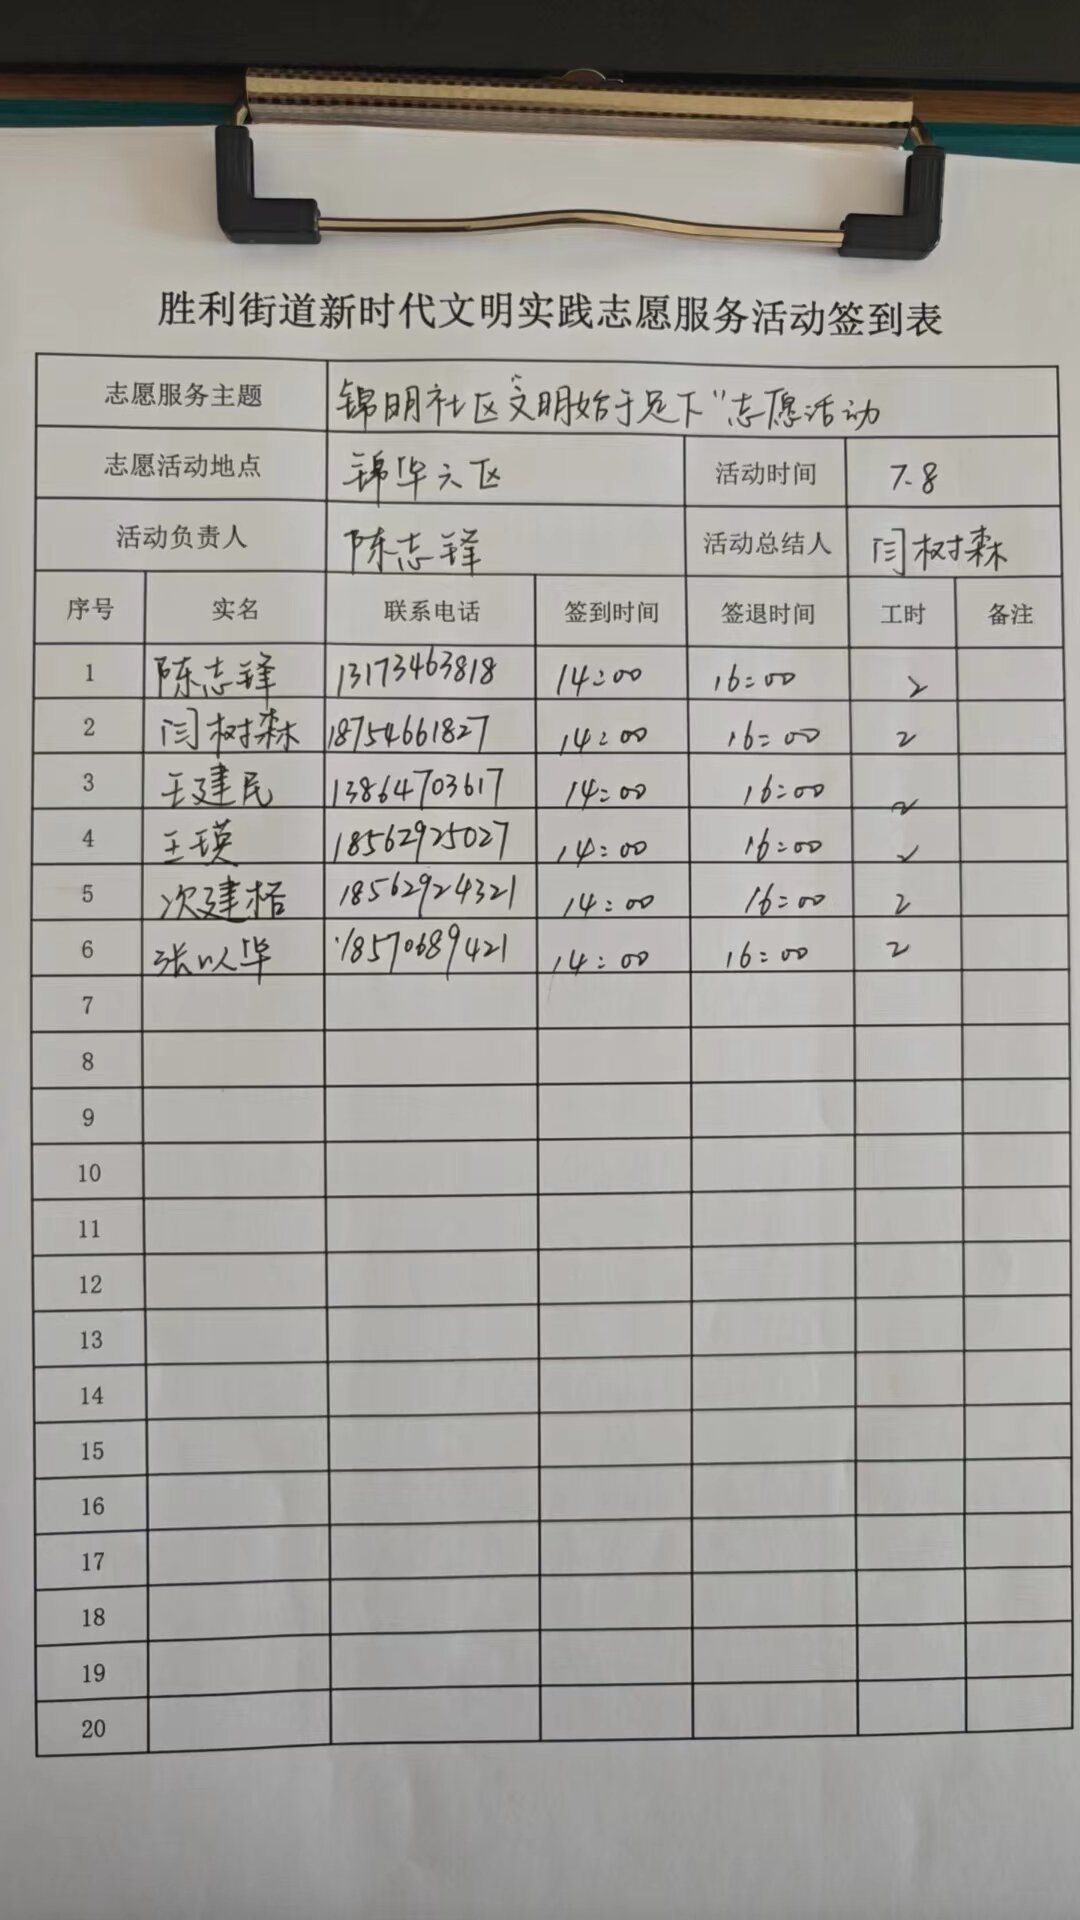 胜利街道新时代文明实践志愿服务活动签到表
志愿服务主题 锦明社区"文明始于足下"志愿活动
志愿活动地点 锦华六区 活动时间 7.8
活动负责人 陈志锋 活动总结人 闫树森
序号 实名 联系电话 签到时间 签退时间 工时 备注
1 陈志锋 13173463818 14:00 16:00 2
2 闫树森 18754661827 14:00 16:00 2
3 王建民 13864703617 14:00 16:00 2
4 王瑛 18562925027 14:00 16:00 2
5 次建格 18562924321 14:00 16:00 2
6 张以华 18570689421 14:00 16:00 2
7
8
9
10
11
12
13
14
15
16
17
18
19
20